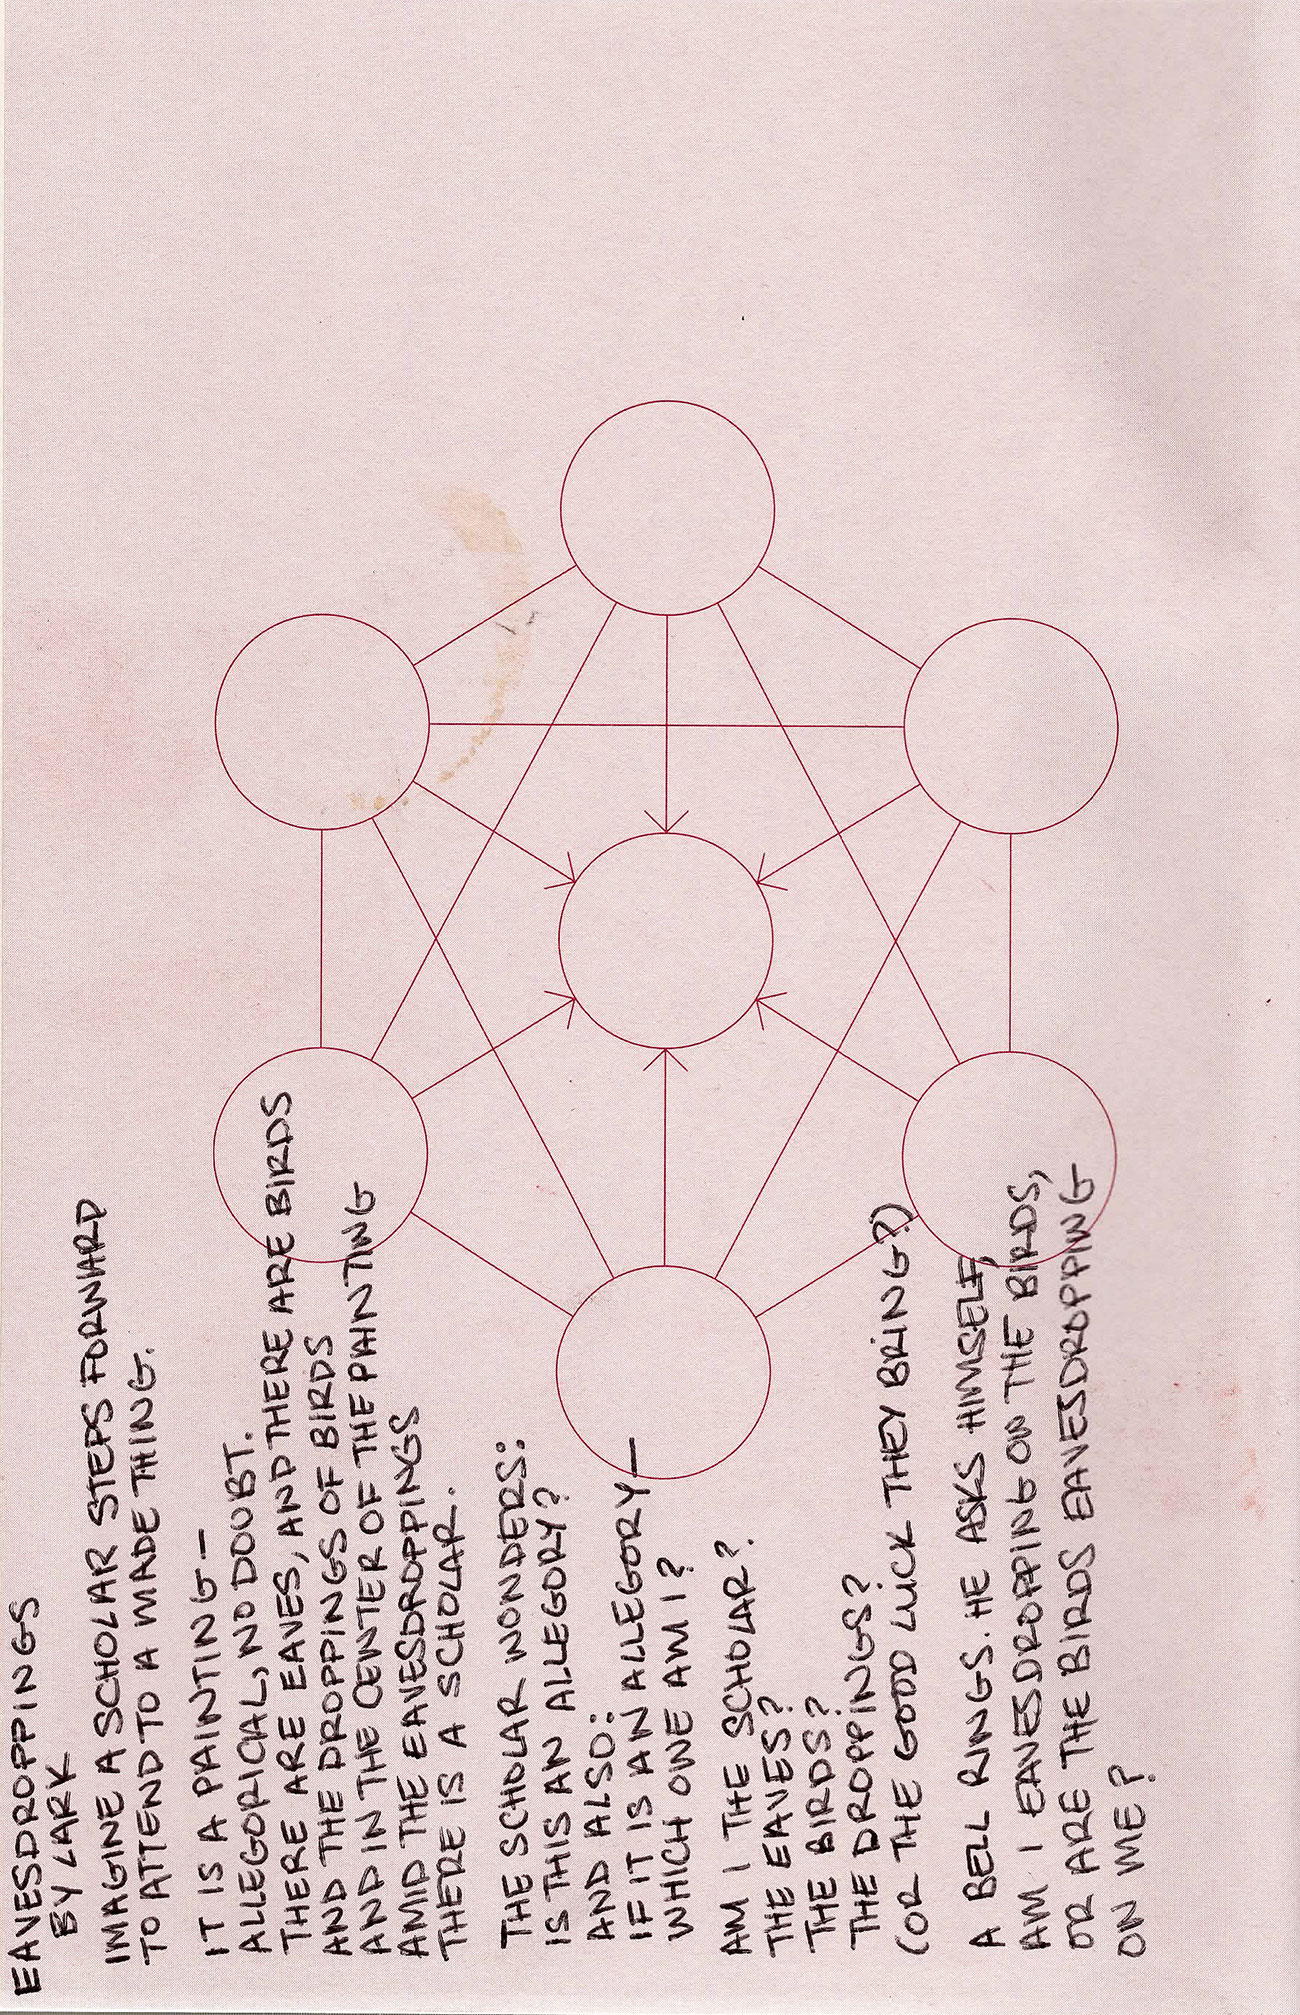 EAVESDROPPINGS
BY LARK
IMAGINE A SCHOLAR STEPS FORWARD
TO ATTEND TO A MADE THING.
IT IS A PAINTING –
ALLEGORICAL, NO DOUBT.
THERE ARE EAVES, AND THERE ARE BIRDS
AND THE DROPPINGS OF BIRDS
AND IN THE CENTER OF THE PAINTING
AMID THE EAVESDROPPINGS
THERE IS A SCHOLAR.
THE SCHOLAR WONDERS:
IS THIS AN ALLEGORY?
AND ALSO:
IF IT IS AN ALLEGORY –
WHICH ONE AM I?
AM I THE SCHOLAR?
THE EAVES?
THE BIRDS?
THE DROPPINGS?
(OR THE GOOD LUCK THEY BRING?)
A BELL RINGS. HE ASKS HIMSELF,
AM I EAVESDROPPING ON THE BIRDS,
OR ARE THE BIRDS EAVESDROPPING
ON ME?